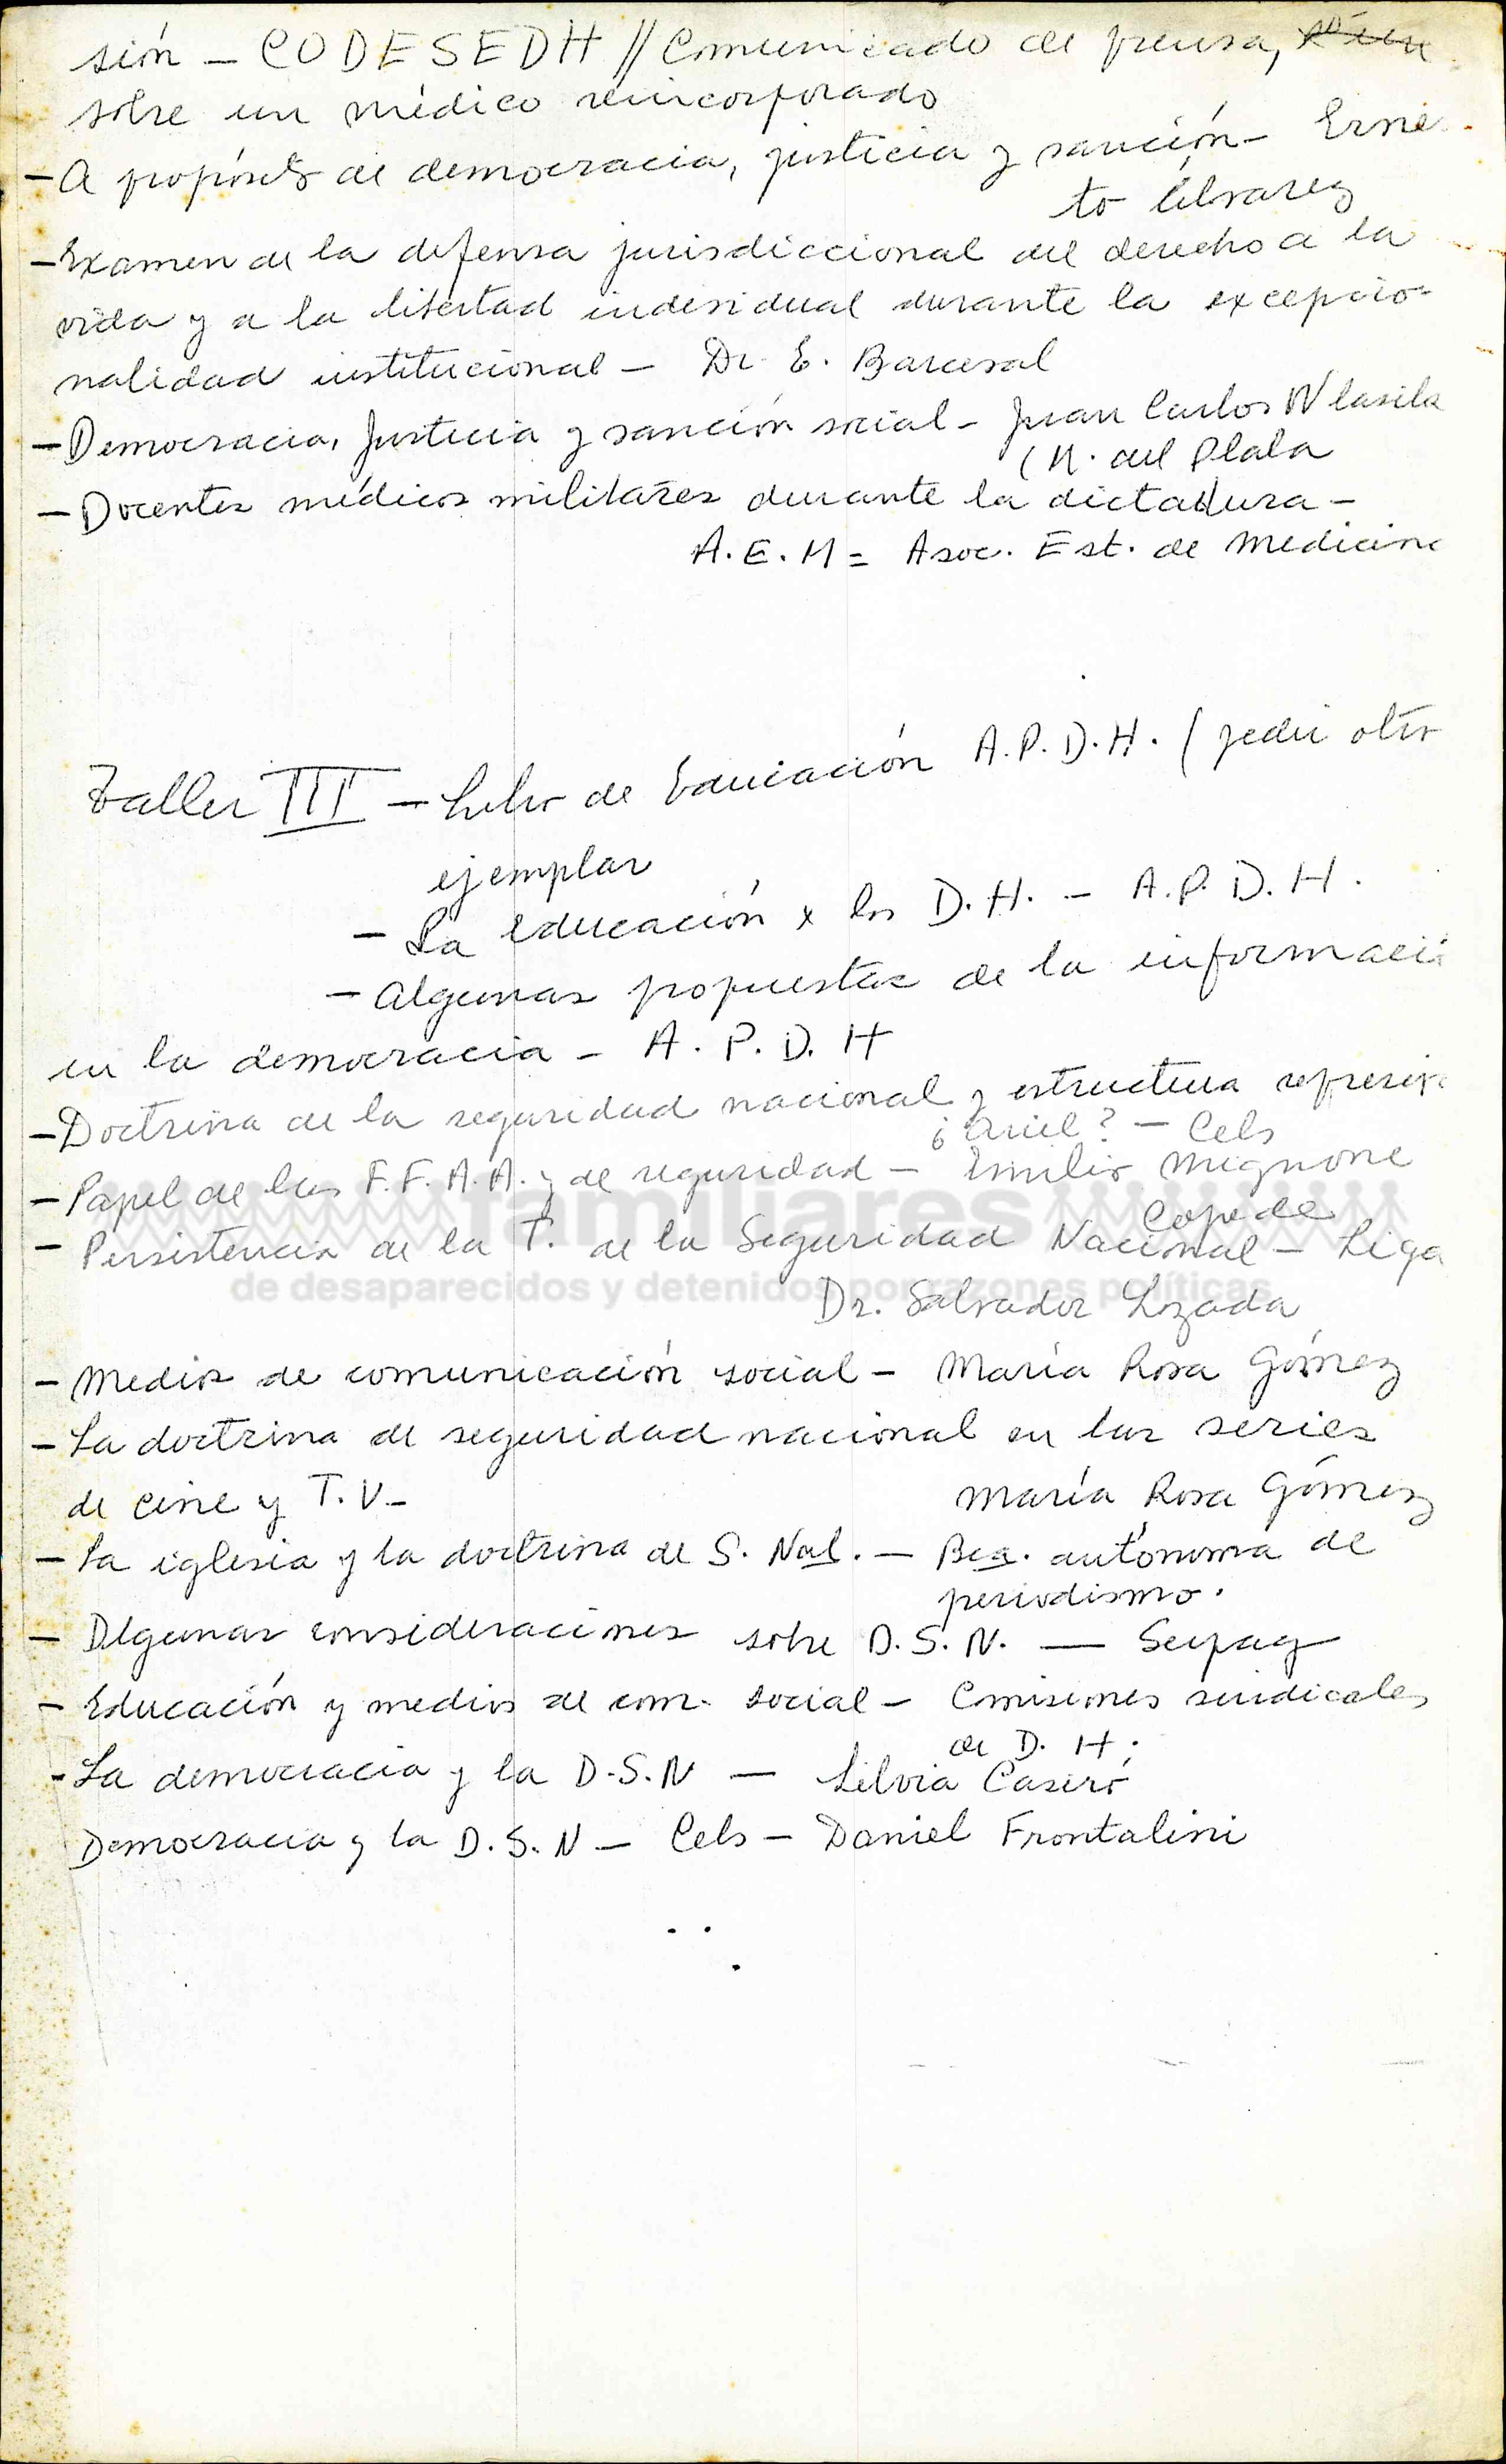 sión - CODESEDH // Comunicado de prensa,
sobre un médico reincorporado
- A propósito de democracia, justicia y sanción - Erne
to Alvarez
- Examen de la defensa jurisdiccional del derecho a la
vida y a la libertad individual durante la excepcio-
nalidad institucional - Dr. E. Barcesal
- Democracia, Justicia y sanción social - Juan Carlos Wlasik
(M. del Plata
- Docentes médicos militares durante la dictadura -
A.E.M = Asoc. Est. de Medicina
Taller III - Libro de Educación A.P.D.H. (pedir otro
ejemplar
- La educación x los D.H. - A.P.D.H.
- Algunas propuestas de la informaci
en la democracia - A.P.D.H
- Doctrina de la seguridad nacional y estructura represiv
¿Ariel? - Cels
- Papel de las F.F.A.A. y de seguridad - Emilio Mignone
familiares
Copede
- Persistencia de la T. de la Seguridad Nacional - Liga
de desaparecidos y detenidos por razones políticas
Dr. Salvador Lozada
- Medios de comunicación social - María Rosa Gómez
- La doctrina de seguridad nacional en las series
de cine y T.V. - María Rosa Gómez
- La iglesia y la doctrina de S. Nal. - Bca. autónoma de
periodismo.
- Algunas consideraciones sobre D.S.N. — Serpaj
- Educación y medios de com. social - Comisiones sindicales
de D.H.
- La democracia y la D.S.N — Silvia Caseró
Democracia y la D.S.N - Cels - Daniel Frontalini